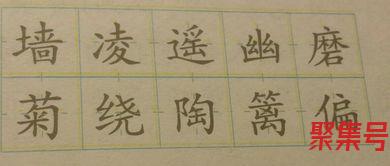 墙凌遥幽磨
菊绕陶篱偏
聚集号